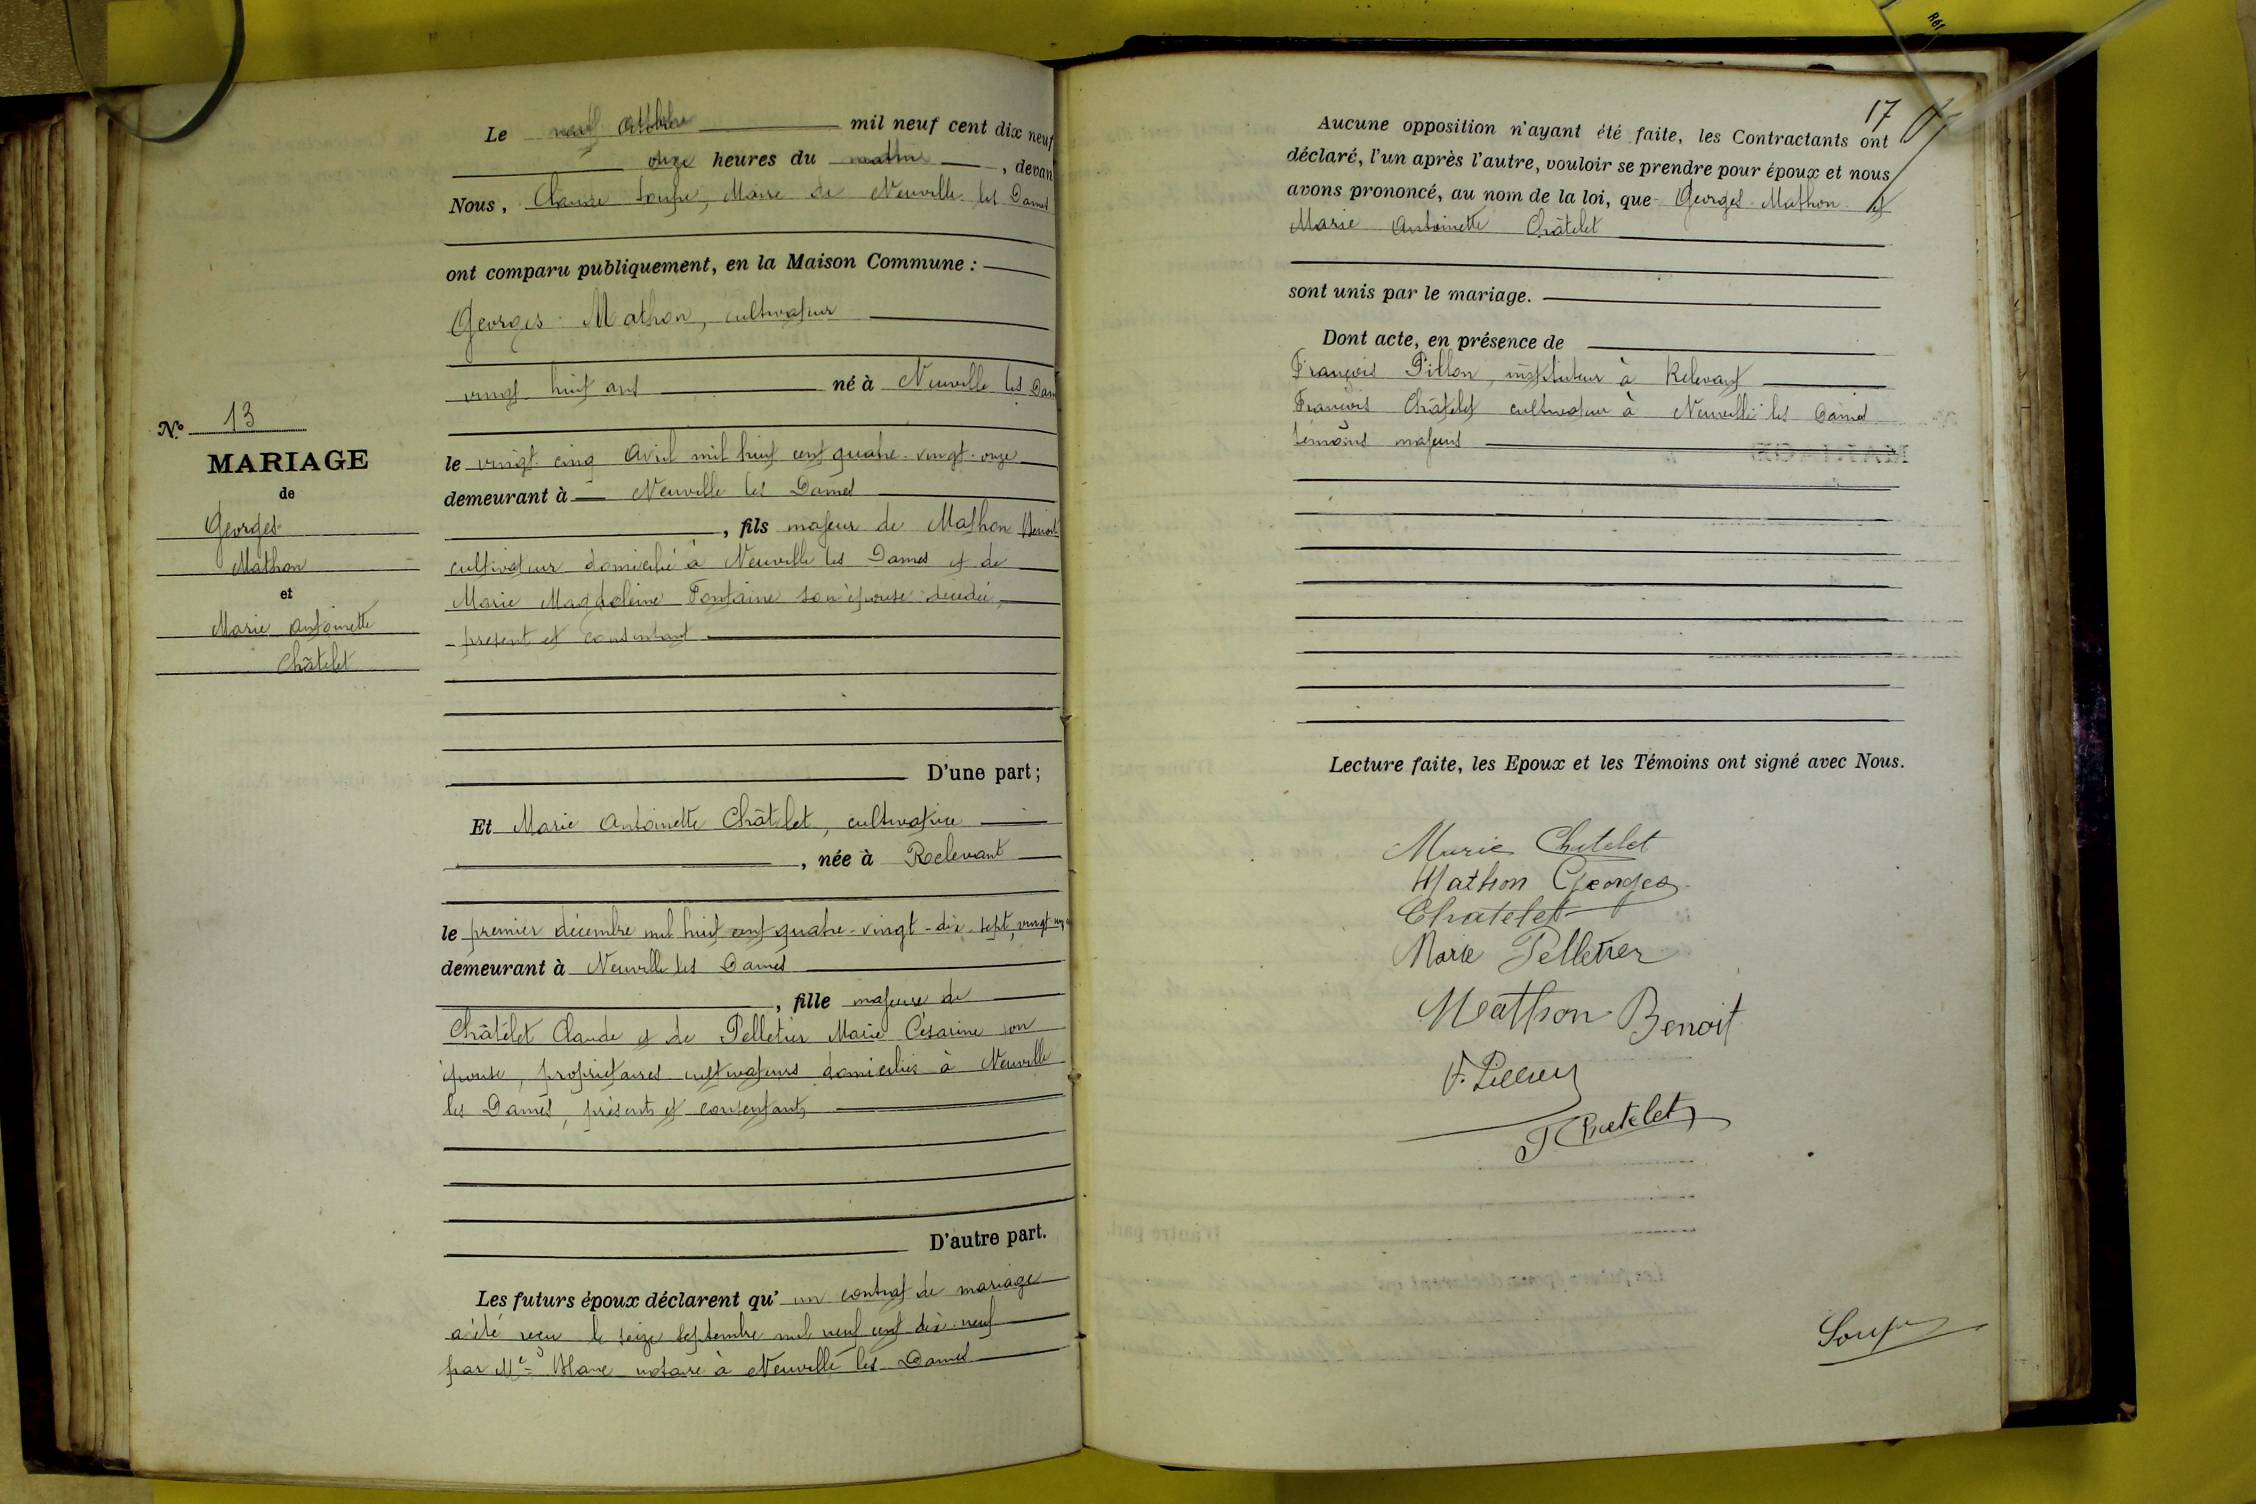 N.° 13
MARIAGE
de
Georges
Mathon
et
Marie Antoinette
Châtelet
Le neuf Octobre mil neuf cent dix neuf
onze heures du matin, devan
Nous, Claude Soupe, Maire de Neuville les Dames
ont comparu publiquement, en la Maison Commune :
Georges Mathon, cultivateur
vingt huit ans né à Neuville les Dam
le vingt cinq Avril mil huit cent quatre-vingt-onze
demeurant à Neuville les Dames
, fils majeur de Mathon Benoit
cultivateur domicilié à Neuville les Dames et de
Marie Magdeleine Fontaine son épouse décédée,
présent et consentant
D'une part ;
Et Marie Antoinette Châtelet, cultivatrice
, née à Relevant
le premier décembre mil huit cent quatre-vingt-dix-sept, vingt un
demeurant à Neuville les Dames
, fille majeure de
Châtelet Claude et de Pelletier Marie Césarine son
épouse, propriétaires cultivateurs domiciliés à Neuville
les Dames, présents et consentants
D'autre part.
Les futurs époux déclarent qu' un contrat de mariage
a été reçu le seize septembre mil neuf cent dix-neuf
par Me notaire à Neuville les Dames
17
Aucune opposition n'ayant été faite, les Contractants ont
déclaré, l'un après l'autre, vouloir se prendre pour époux et nous
avons prononcé, au nom de la loi, que Georges Mathon et
Marie Antoinette Châtelet
sont unis par le mariage.
Dont acte, en présence de
François Pillon, instituteur à Relevant
François Châtelet cultivateur à Neuville les Dames
témoins majeurs
Lecture faite, les Epoux et les Témoins ont signé avec Nous.
Marie Chatelet
Mathon Georges
Chatelet
Marie Pelletier
Mathon Benoit
F. Pillon
F Chatelet
Soupe
Réf